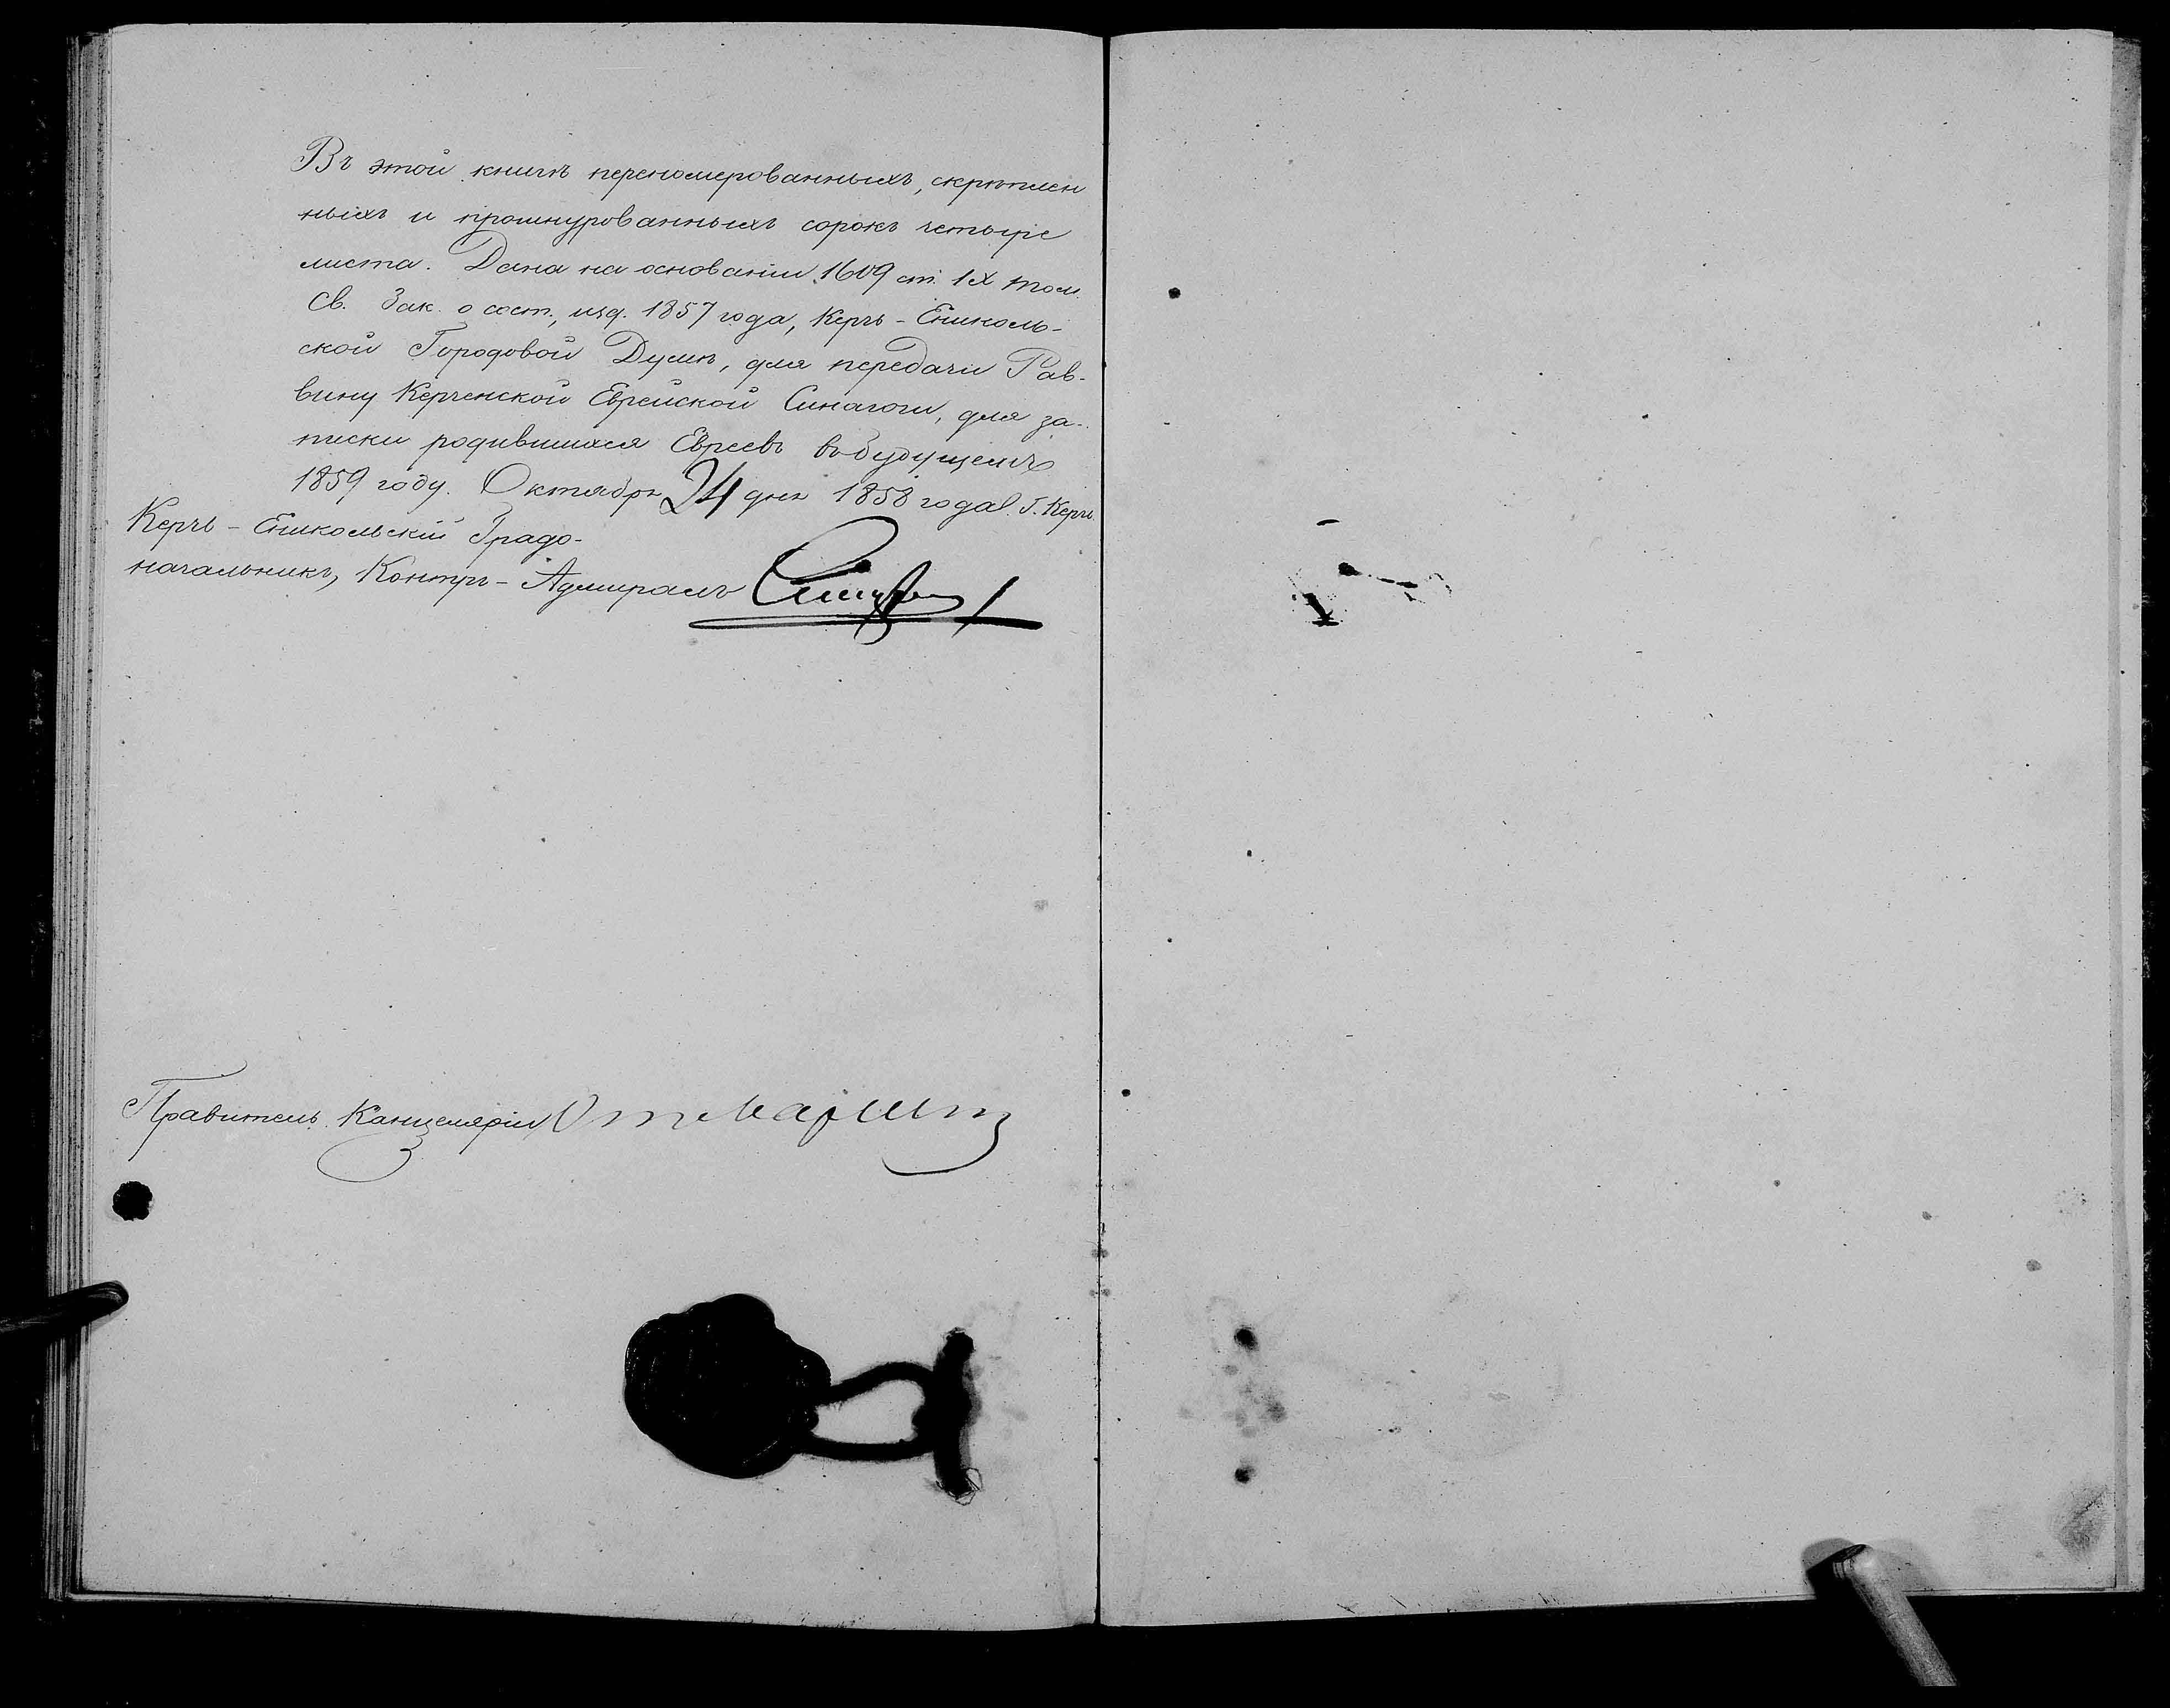 Въ этой книгѣ переномерованныхъ, скрѣплен
ныхъ и прошнурованныхъ сорокъ четыре
листа. Дана на основаніи 1609 ст. IX том.
Св. Зак. о сост., изд. 1857 года, Керчь-Ениколь-
ской Городовой Думѣ, для передачи Рав-
вину Керченской Еврейской Синагоги, для за-
писки родившихся Евреевъ въ будущемъ
1859 году. Октября 24 дня 1858 года. Г. Керчь.
Керчь-Еникольскій Градо-
начальникъ, Контръ-Адмиралъ
Правитель Канцеляріи